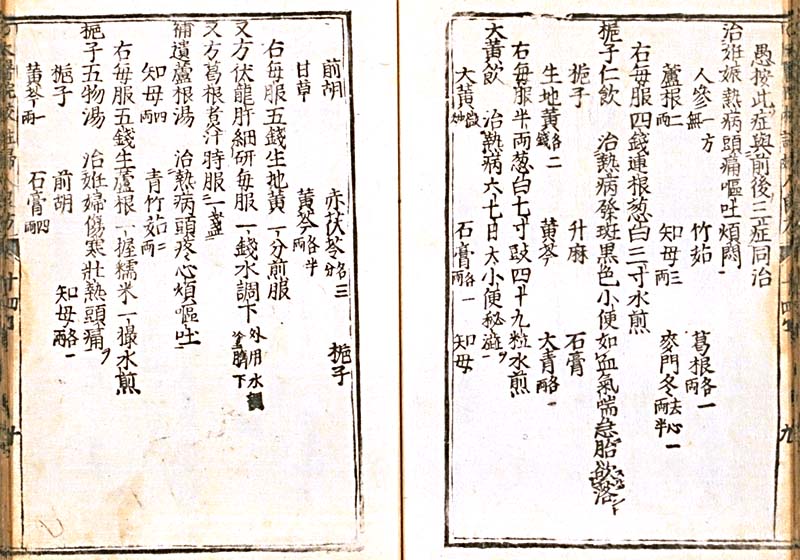 愚按此症與前後三症同治
治妊娠熱病頭痛嘔吐煩悶
人參一方無 竹茹 葛根各一兩
蘆根二兩 知母三兩 麥門冬去心一兩半
右每服四錢連根葱白三寸水煎
梔子仁飲 治熱病發斑黑色小便如血氣喘急胎欲落
梔子 升麻 石膏
生地黃各二錢 黃芩 大青各一兩
右每服半兩葱白七寸豉四十九粒水煎
大黃飲 治熱病六七日大小便秘澁
大黃微炒 石膏各一兩 知母
前胡 赤茯苓各三分 梔子
甘草 黃芩各半兩
右每服五錢生地黃一分煎服
又方伏龍肝細研每服一錢水調下外用水調塗臍下
又方葛根煮汁時服一盞
補遺蘆根湯 治熱病頭疼心煩嘔吐
知母四兩 青竹茹三兩
右每服五錢生蘆根一握糯米一撮水煎
梔子五物湯 治妊婦傷寒壯熱頭痛
梔子 前胡 知母各一兩
黃芩一兩 石膏四兩